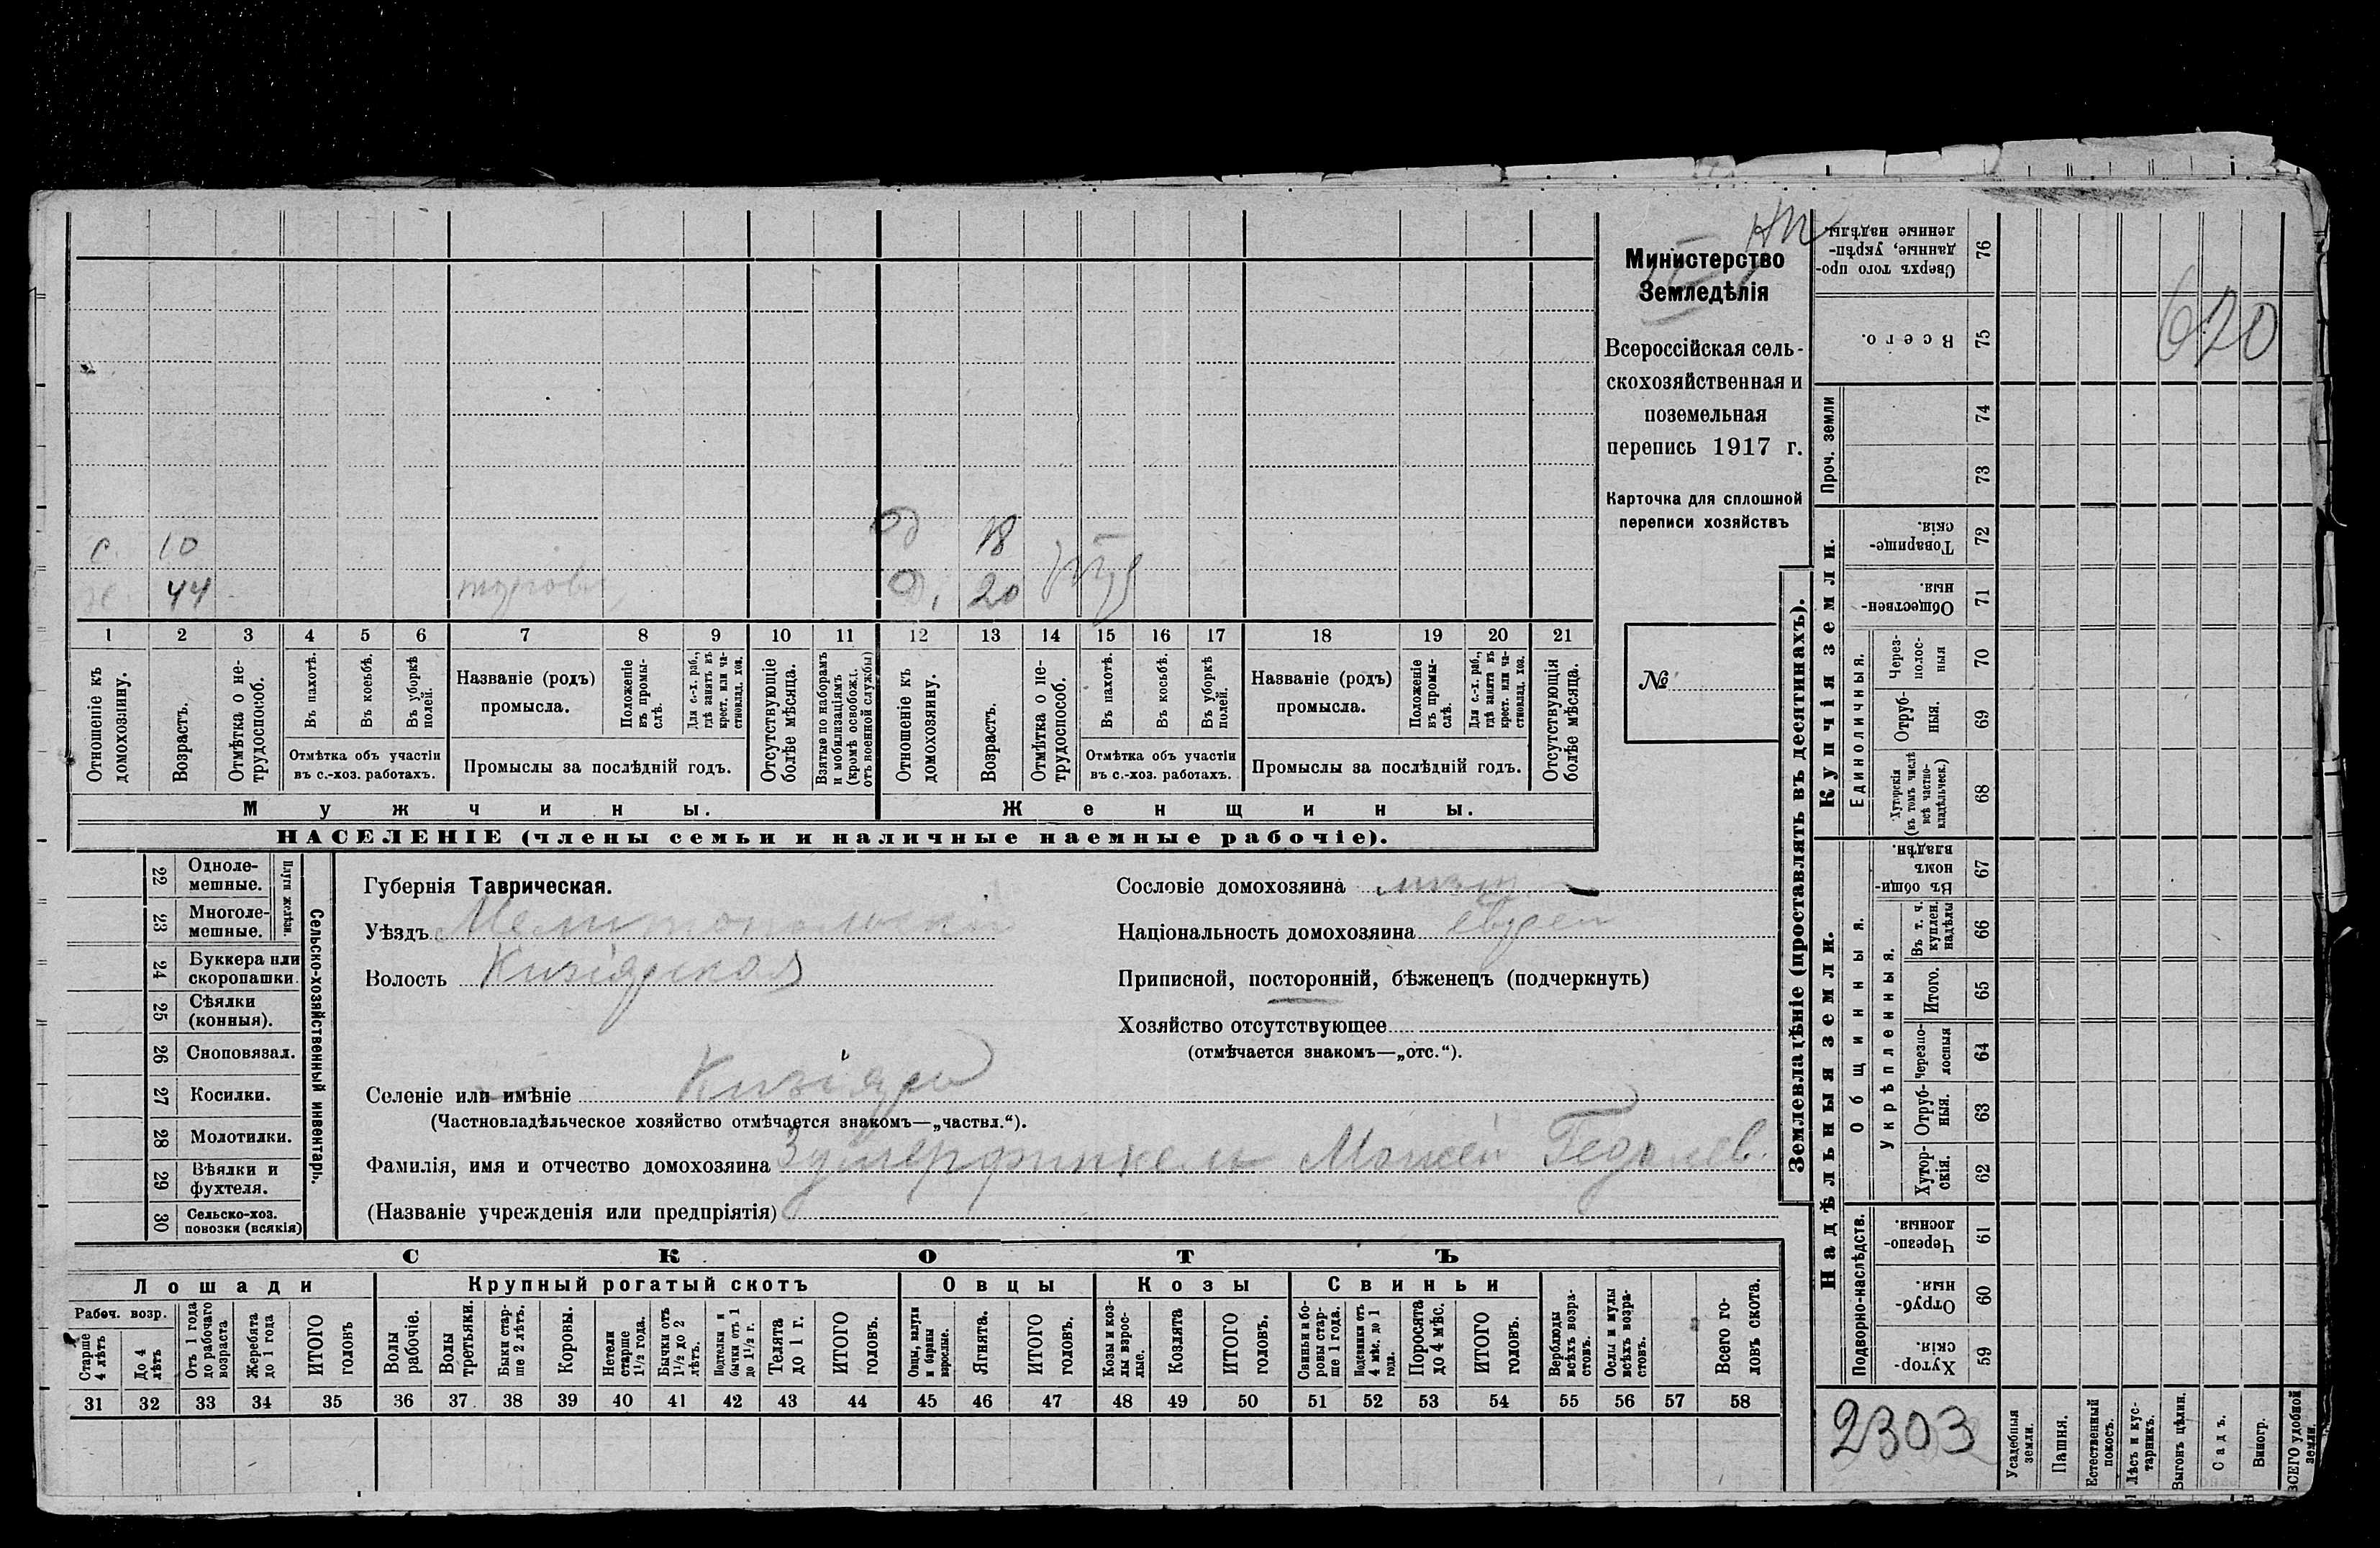 Министерство
Земледѣлія
Всероссійская сель-
скохозяйственная и
поземельная
перепись 1917 г.
Карточка для сплошной
переписи хозяйствъ
№
с. 10
44 торгов
д 18
д. 20
1 2 3 4 5 6 7 8 9 10 11 12 13 14 15 16 17 18 19 20 21
Отношеніе къ домохозяину.
Возрастъ.
Отмѣтка о не-трудоспособ.
Въ пахотѣ.
Въ косьбѣ.
Въ уборкѣ полей.
Отмѣтка объ участіи
въ с.-хоз. работахъ.
Названіе (родъ)
промысла.
Положеніе въ промы-слѣ.
Для с.-х. раб., гдѣ занятъ въ крест. или ча-стновлад. хоз.
Промыслы за послѣдній годъ.
Отсутствующіе болѣе мѣсяца.
Взятые по наборамъ и мобилизаціямъ (кромѣ освобожд. отъ военной службы)
Отношеніе къ домохозяину.
Возрастъ.
Отмѣтка о не-трудоспособ.
Въ пахотѣ.
Въ косьбѣ.
Въ уборкѣ полей.
Отмѣтка объ участіи
въ с.-хоз. работахъ.
Названіе (родъ)
промысла.
Положеніе въ промы-слѣ.
Для с.-х. раб., гдѣ занята въ крест. или ча-стновлад. хоз.
Промыслы за послѣдній годъ.
Отсутствующія болѣе мѣсяца.
Мужчины. Женщины.
НАСЕЛЕНІЕ (члены семьи и наличные наемные рабочіе).
Сельско-хозяйственный инвентарь.
Плуги желѣзн.
22 Одноле-мешные.
23 Многоле-мешные.
24 Буккера или скоропашки.
25 Сѣялки (конныя).
26 Сноповязал.
27 Косилки.
28 Молотилки.
29 Вѣялки и фухтеля.
30 Сельско-хоз. повозки (всякія)
Губернія Таврическая.
Уѣздъ Мелитопольскій
Волость Кизіярская
Селеніе или имѣніе Кизіяръ
(Частновладѣльческое хозяйство отмѣчается знакомъ—„частвл.“).
Фамилія, имя и отчество домохозяина Зумерфинкель Мошей Гедалев.
(Названіе учрежденія или предпріятія)
Сословіе домохозяина мѣщ
Національность домохозяина еврей
Приписной, посторонній, бѣженецъ (подчеркнуть)
Хозяйство отсутствующее
(отмѣчается знакомъ—„отс.“).
СКОТЪ
Лошади Крупный рогатый скотъ Овцы Козы Свиньи
Рабоч. возр.
Старше 4 лѣтъ
До 4 лѣтъ
Отъ 1 года до рабочаго возраста
Жеребята до 1 года
ИТОГО головъ
Волы рабочіе.
Волы третьяки.
Быки стар-ше 2 лѣтъ.
Коровы.
Нетели старше 1½ года.
Бычки отъ 1½ до 2 лѣтъ.
Подтелки и бычки отъ 1 до 1½ г.
Телята до 1 г.
ИТОГО головъ.
Овцы, валухи и бараны взрослые.
Ягнята.
ИТОГО головъ.
Козы и коз-лы взрос-лые.
Козлята
ИТОГО головъ.
Свиньи и бо-ровы стар-ше 1 года.
Подсвинки отъ 4 мѣс. до 1 года.
Поросята до 4 мѣс.
ИТОГО головъ.
Верблюды всѣхъ возра-стовъ.
Ослы и мулы всѣхъ возра-стовъ.
Всего го-ловъ скота.
31 32 33 34 35 36 37 38 39 40 41 42 43 44 45 46 47 48 49 50 51 52 53 54 55 56 57 58
Землевладѣніе (проставлять въ десятинахъ).
Сверхъ того про-данные, укрѣп-ленные надѣлы. 76
Всего. 75
620
Проч. земли 74
73
Купчія земли.
Товарище-скія. 72
Обществен-ныя. 71
Единоличныя.
Через-полос-ныя 70
Отруб-ныя. 69
Хуторскія (въ томъ числѣ всѣ частно-владѣльческ.) 68
Надѣльныя земли.
Общинныя.
Въ общи-номъ владѣн. 67
Укрѣпленныя.
Въ т. ч. куплен. надѣлы 66
Итого. 65
Черезпо-лосныя 64
Отруб-ныя. 63
Хутор-скія. 62
Подворно-наслѣдств.
Черезпо-лосныя. 61
Отруб-ныя. 60
Хутор-скія. 59
2303
Усадебныя земли.
Пашня.
Естественный покосъ.
Лѣсъ и кус-тарникъ.
Выгонъ цѣлин.
Садъ.
Виногр.
ВСЕГО удобной земли.